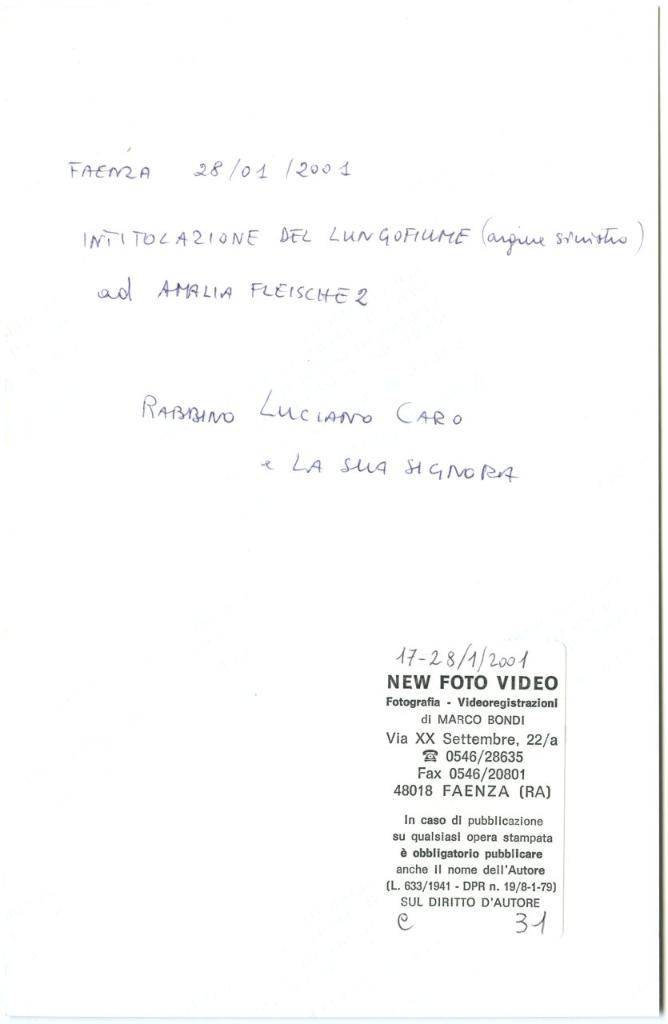 FAENZA 28/01/2001
INTITOLAZIONE DEL LUNGOFIUME (argine sinistro)
ad AMALIA FLEISCHER
RABBINO LUCIANO CARO
e LA SUA SIGNORA
17-28/1/2001
NEW FOTO VIDEO
Fotografia - Videoregistrazioni
di MARCO BONDI
Via XX Settembre, 22/a
☎ 0546/28635
Fax 0546/20801
48018 FAENZA (RA)
In caso di pubblicazione
su qualsiasi opera stampata
è obbligatorio pubblicare
anche il nome dell'Autore
(L. 633/1941 - DPR n. 19/8-1-79)
SUL DIRITTO D'AUTORE
C 31